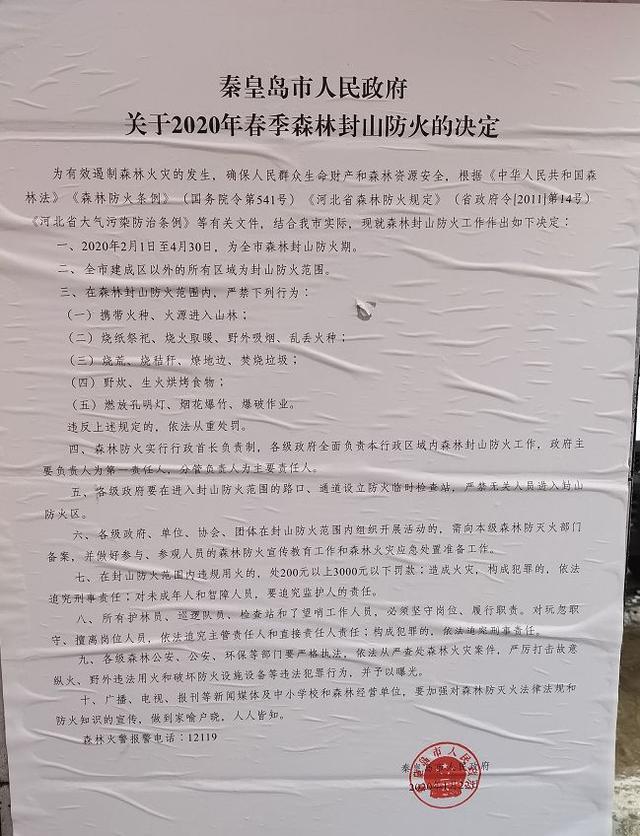 秦皇岛市人民政府
关于2020年春季森林封山防火的决定
为有效遏制森林火灾的发生，确保人民群众生命财产和森林资源安全，根据《中华人民共和国森
林法》《森林防火条例》（国务院令第541号）《河北省森林防火规定》（省政府令[2011]第14号）
《河北省大气污染防治条例》等有关文件，结合我市实际，现就森林封山防火工作作出如下决定：
一、2020年2月1日至4月30日，为全市森林封山防火期。
二、全市建成区以外的所有区域为封山防火范围。
三、在森林封山防火范围内，严禁下列行为：
（一）携带火种、火源进入山林；
（二）烧纸祭祀、烧火取暖、野外吸烟、乱丢火种；
（三）烧荒、烧秸秆、燎地边、焚烧垃圾；
（四）野炊、生火烘烤食物；
（五）燃放孔明灯、烟花爆竹、爆破作业。
违反上述规定的，依法从重处罚。
四、森林防火实行行政首长负责制，各级政府全面负责本行政区域内森林封山防火工作，政府主
要负责人为第一责任人，分管负责人为主要责任人。
五、各级政府要在进入封山防火范围的路口、通道设立防火临时检查站，严禁无关人员进入封山
防火区。
六、各级政府、单位、协会、团体在封山防火范围内组织开展活动的，需向本级森林防灭火部门
备案，并做好参与、参观人员的森林防火宣传教育工作和森林火灾应急处置准备工作。
七、在封山防火范围内违规用火的，处200元以上3000元以下罚款；造成火灾，构成犯罪的，依法
追究刑事责任；对未成年人和智障人员，要追究监护人的责任。
八、所有护林员、巡逻队员、检查站和了望哨工作人员，必须坚守岗位、履行职责。对玩忽职
守、擅离岗位人员，依法追究主管责任人和直接责任人责任；构成犯罪的，依法追究刑事责任。
九、各级森林公安、公安、环保等部门要严格执法，依法从严查处森林火灾案件，严厉打击故意
纵火、野外违法用火和破坏防火设施设备等违法犯罪行为，并予以曝光。
十、广播、电视、报刊等新闻媒体及中小学校和森林经营单位，要加强对森林防灭火法律法规和
防火知识的宣传，做到家喻户晓，人人皆知。
森林火警报警电话：12119
秦皇岛市人民政府